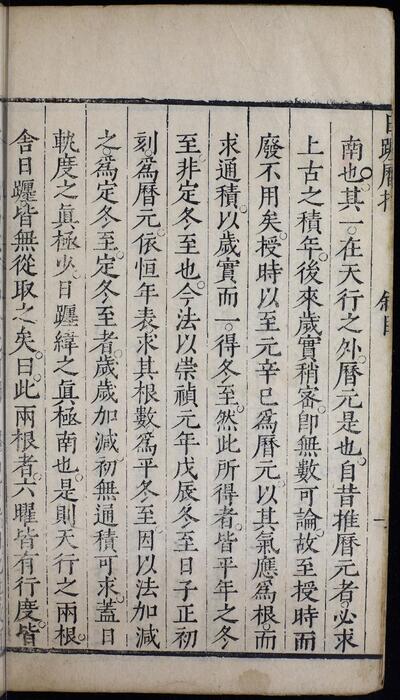 日躔曆指
敘目
一
南也其一在天行之外曆元是也自昔推曆元者必求
上古之積年後來歲實稍密即無數可論故至授時而
廢不用矣授時以至元辛巳爲曆元以其氣應爲根而
求通積以歲實而一得冬至然此所得者皆平年之冬
至非定冬至也今法以崇禎元年戊辰冬至日子正初
刻爲曆元依恒年表求其根數爲平冬至因以法加減
之爲定冬至定冬至者歲歲加減初無通積可求蓋日
軌度之眞極
日躔緯之眞極南也是則天行之兩根
舎日躔皆無從取之矣曰此兩根者六曜皆有行度皆